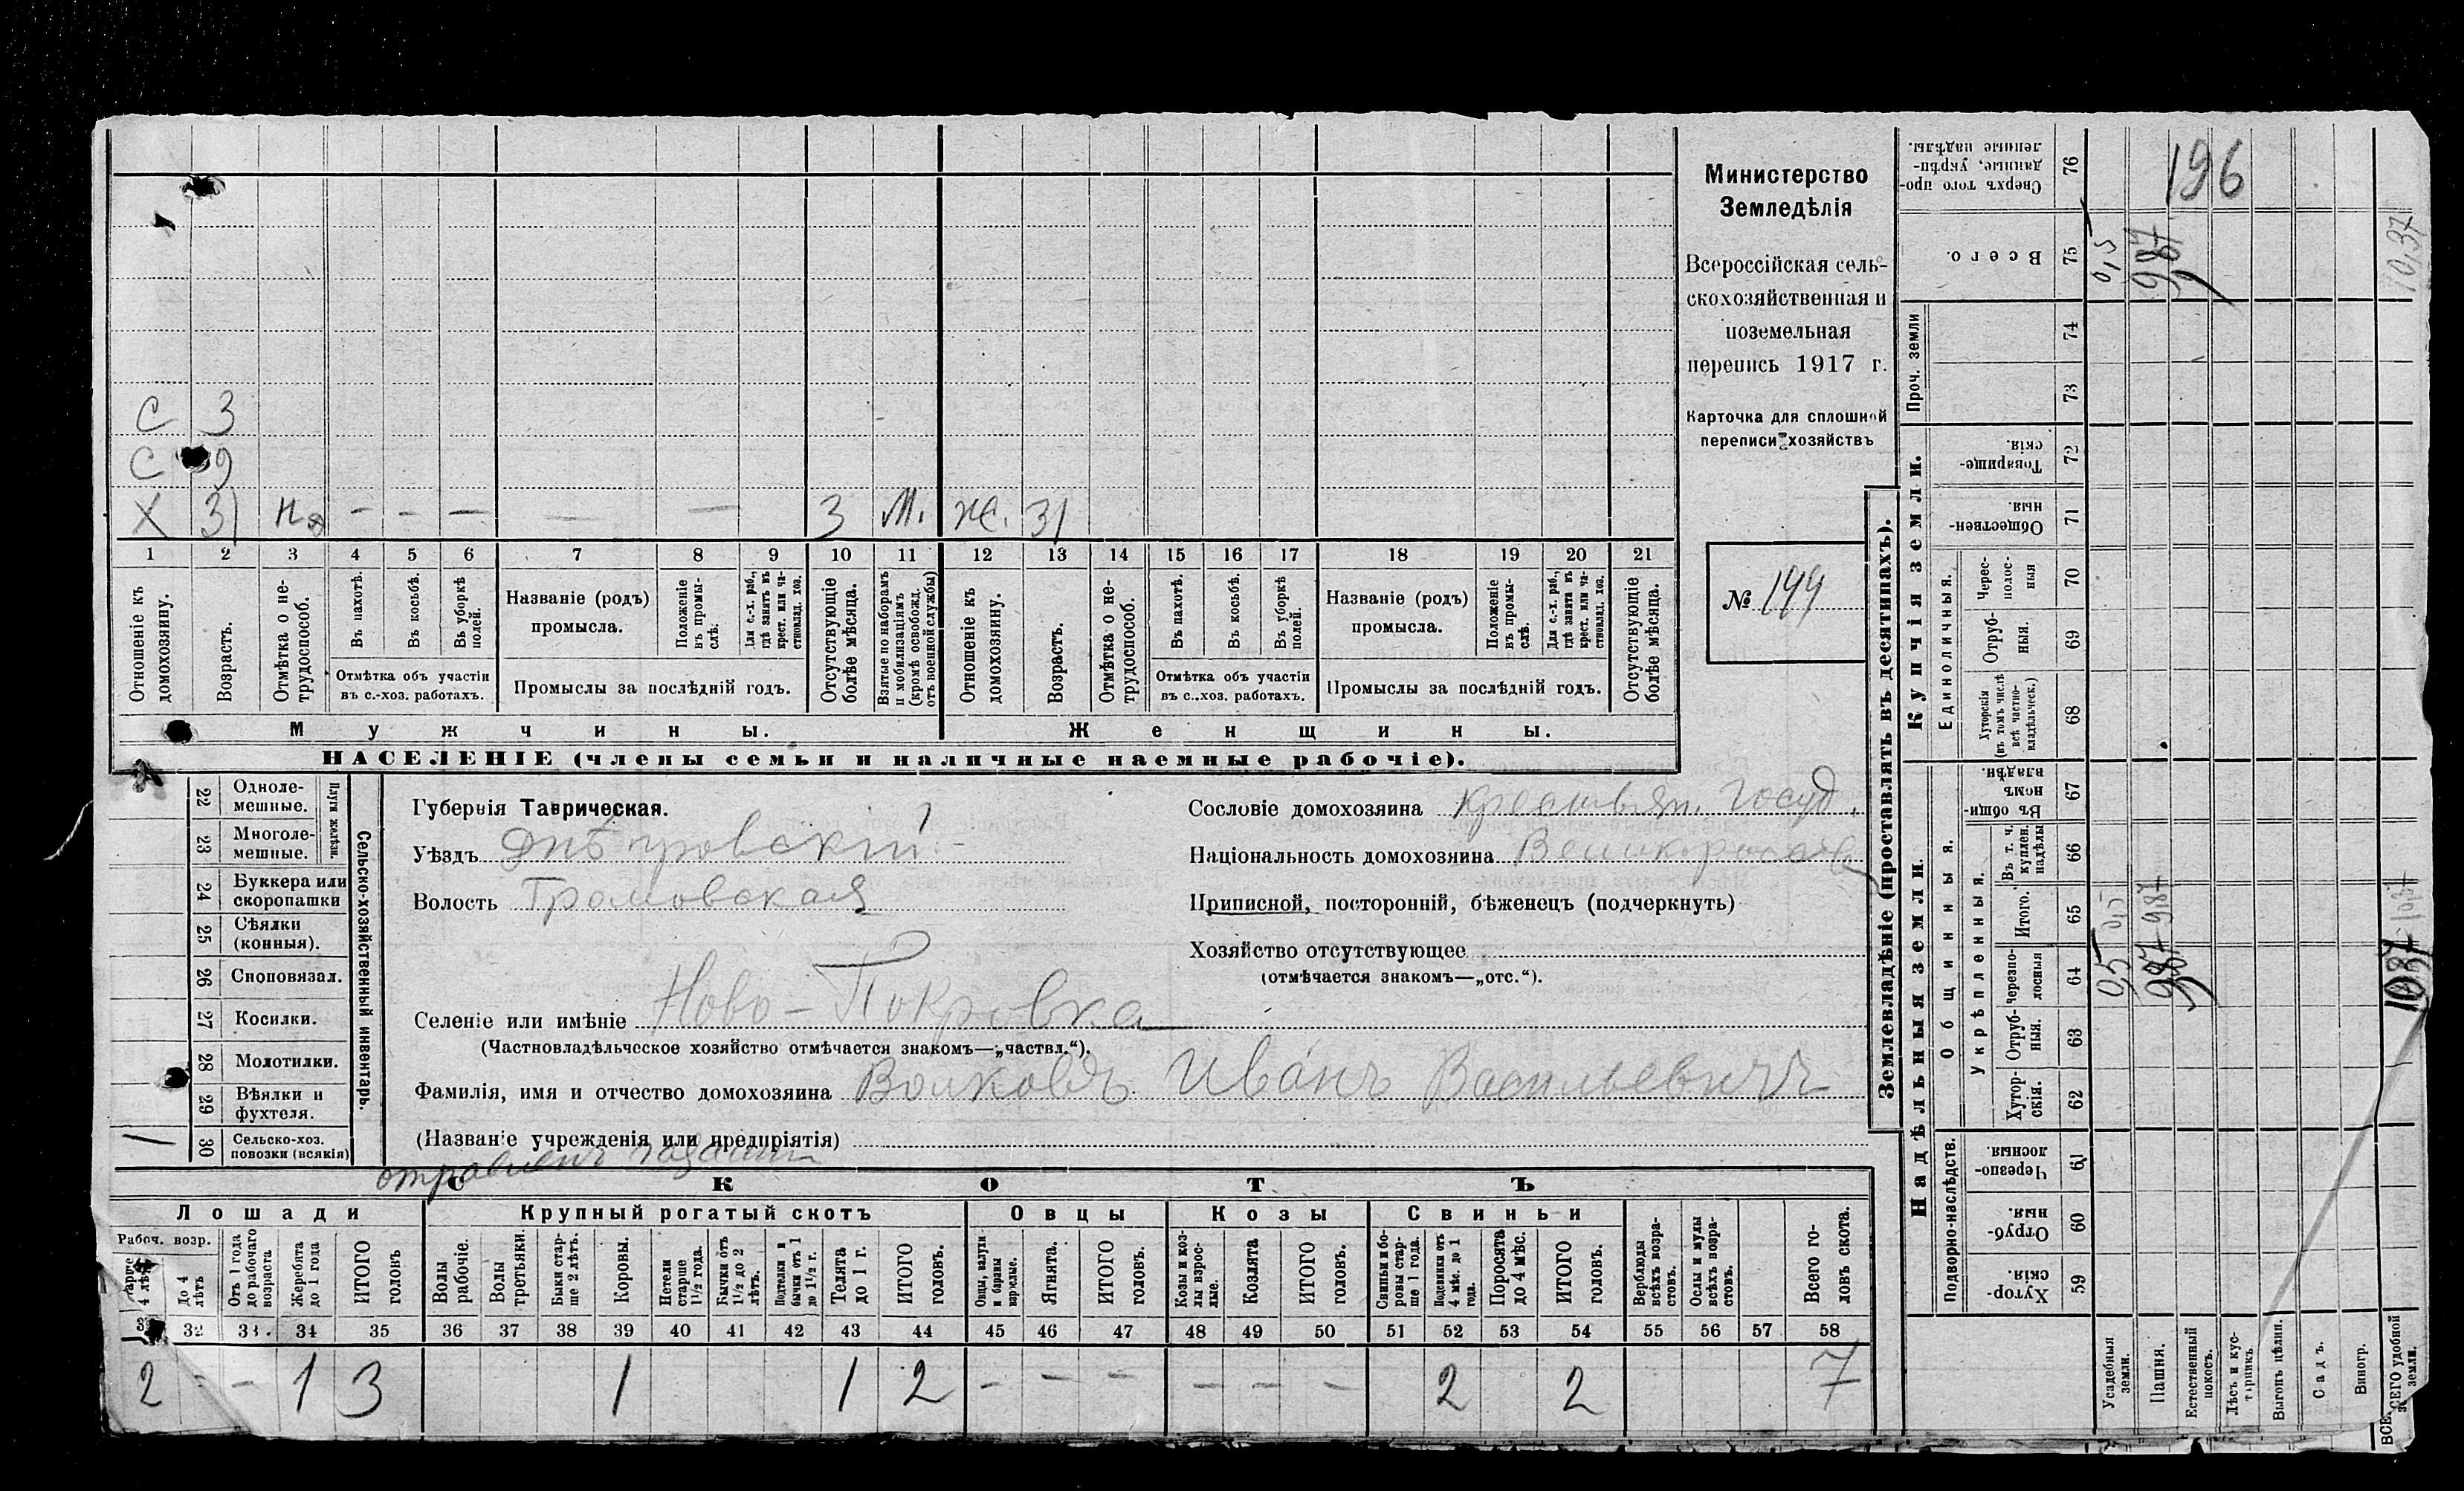 Министерство
Земледѣлія
Всероссійская сель-
скохозяйственная и
поземельная
перепись 1917 г.
Карточка для сплошной
переписи хозяйствъ
№ 199
С 3
С 9
Х 31 — — — — — 3 М. Ж. 31
1 2 3 4 5 6 7 8 9 10 11 12 13 14 15 16 17 18 19 20 21
Отношеніе къ домохозяину.
Возрастъ.
Отмѣтка о не-трудоспособ.
Въ пахотѣ.
Въ косьбѣ.
Въ уборкѣ полей.
Отмѣтка объ участіи
въ с.-хоз. работахъ.
Названіе (родъ)
промысла.
Положеніе въ промы-слѣ.
Для с.-х. раб., гдѣ занятъ въ крест. или ча-стновлад. хоз.
Промыслы за послѣдній годъ.
Отсутствующіе болѣе мѣсяца.
Взятые по наборамъ и мобилизаціямъ (кромѣ освобожд. отъ военной службы)
Отношеніе къ домохозяину.
Возрастъ.
Отмѣтка о не-трудоспособ.
Въ пахотѣ.
Въ косьбѣ.
Въ уборкѣ полей.
Отмѣтка объ участіи
въ с.-хоз. работахъ.
Названіе (родъ)
промысла.
Положеніе въ промы-слѣ.
Для с.-х. раб., гдѣ занята въ крест. или ча-стновлад. хоз.
Промыслы за послѣдній годъ.
Отсутствующіе болѣе мѣсяца.
Мужчины.
Женщины.
НАСЕЛЕНІЕ (члены семьи и наличные наемные рабочіе).
Сельско-хозяйственный инвентарь.
Плуги желѣзн.
22 Одноле-мешные.
23 Многоле-мешные.
24 Буккера или скоропашки
25 Сѣялки (конныя).
26 Сноповязал.
27 Косилки.
28 Молотилки.
29 Вѣялки и фухтеля.
30 Сельско-хоз. повозки (всякія)
Губернія Таврическая.
Уѣздъ Днѣпровскій
Волость Громовская
Селеніе или имѣніе Ново-Покровка
(Частновладѣльческое хозяйство отмѣчается знакомъ—„частвл.“).
Фамилія, имя и отчество домохозяина Волковъ Иванъ Васильевичъ
(Названіе учрежденія или предпріятія)
Сословіе домохозяина крестьян. Госуд.
Національность домохозяина Великороссъ
Приписной, посторонній, бѣженецъ (подчеркнуть)
Хозяйство отсутствующее
(отмѣчается знакомъ—„отс.“).
СКОТЪ
Лошади
Крупный рогатый скотъ
Овцы
Козы
Свиньи
Рабоч. возр.
Старше 4 лѣтъ
До 4 лѣтъ
Отъ 1 года до рабочаго возраста
Жеребята до 1 года
ИТОГО головъ
Волы рабочіе.
Волы третьяки.
Быки стар-ше 2 лѣтъ.
Коровы.
Нетели старше 1½ года.
Бычки отъ 1½ до 2 лѣтъ.
Подтелки и бычки отъ 1 до 1½ г.
Телята до 1 г.
ИТОГО головъ.
Овцы, валухи и бараны взрослые.
Ягнята.
ИТОГО головъ.
Козы и коз-лы взрос-лые.
Козлята
ИТОГО головъ.
Свиньи и бо-ровы стар-ше 1 года.
Подсвинки отъ 4 мѣс. до 1 года.
Поросята до 4 мѣс.
ИТОГО головъ.
Верблюды всѣхъ возра-стовъ.
Ослы и мулы всѣхъ возра-стовъ.
Всего го-ловъ скота.
32 33 34 35 36 37 38 39 40 41 42 43 44 45 46 47 48 49 50 51 52 53 54 55 56 57 58
2 - - 1 3 1 1 2 - - - - - - 2 2 7
Землевладѣніе (проставлять въ десятинахъ).
Надѣльныя земли.
Купчія земли.
Проч. земли
Подворно-наслѣдств.
Общинныя.
Укрѣпленныя.
Единоличныя.
Хутор-скія. 59
Отруб-ныя. 60
Черезпо-лосныя 61
Хутор-скія. 62
Отруб-ныя. 63
Черезпо-лосныя 64
Итого. 65
Въ т. ч. куплен. надѣлы 66
Въ общи-номъ владѣн. 67
Хуторскія (въ томъ числѣ всѣ частно-владѣльческ.) 68
Отруб-ныя. 69
Черес-полос-ныя 70
Обществен-ныя 71
Товарище-скія. 72
73
74
Всего. 75
Сверхъ того про-данные, укрѣп-ленные надѣлы. 76
Усадебныя земли. 0,5 0,5 0,5
Пашня. 987 987 987
Естественный покосъ.
Лѣсъ и кус-тарникъ.
Выгонъ цѣлин.
Садъ.
Виногр.
ВСЕГО удобной земли. 1037 10,37
196